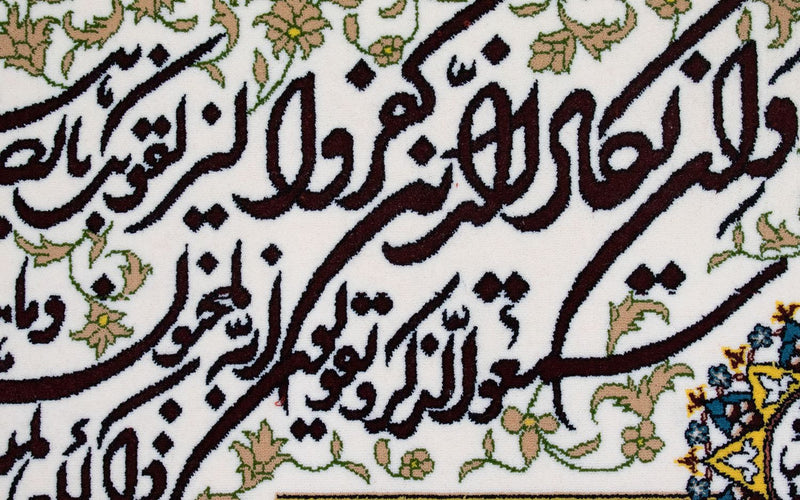 وان يكاد الذين كفروا ليزلقونك
سمعوا الذكر ويقولون انه لمجنون وما